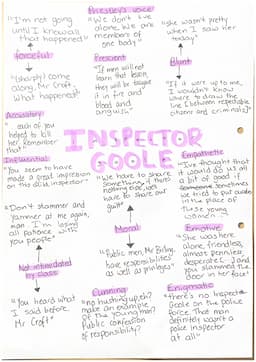 Priestley's voice
"I'm not going
until I know all
that happened"
"We don't live
alone. We are
members of
one body"
"she wasn't pretty
when I saw her
today"
forceful
Prescient
Blunt
"(sharply) come
along, Mr Croft,
what happened?"
"If men will not
learn that lesson,
they will be taught
it in fire and
blood and
anguish"
"If it were up to me,
I wouldn't know
where to draw the
line between
Accusatory
"each of you
helped to kill
her. Remember
that"
INSPECTOR
GOOLE
Influential
"You seem to have
made a great impression
on this child inspector"
"We have to share
something. If there's
nothing else, we'll
have to share our
guilt"
Empathetic
"I've thought that
it would do us all
a bit of good if
sometimes
we tried to put
in the place of
these young
women
"Don't stammer and
yammer at me again,
man. I'm losing
all patience with
you people"
Moral
"Public men, Mr Birling,
have responsibilities
as well as privileges"
Emotive
"She was here
alone, friendless,
almost penniless,
desperate [ and
you slammed the
door in her face"
Not intimidated
by class
"You heard what
I said before,
Mr Croft"
Cunning
"no hushing up, eh?
make an example
of the young man?
Public confession
of responsibility?
Enigmatic
"there's no Inspector
Goole on the police
force. That man
definitely wasn't a
police inspector
at all"